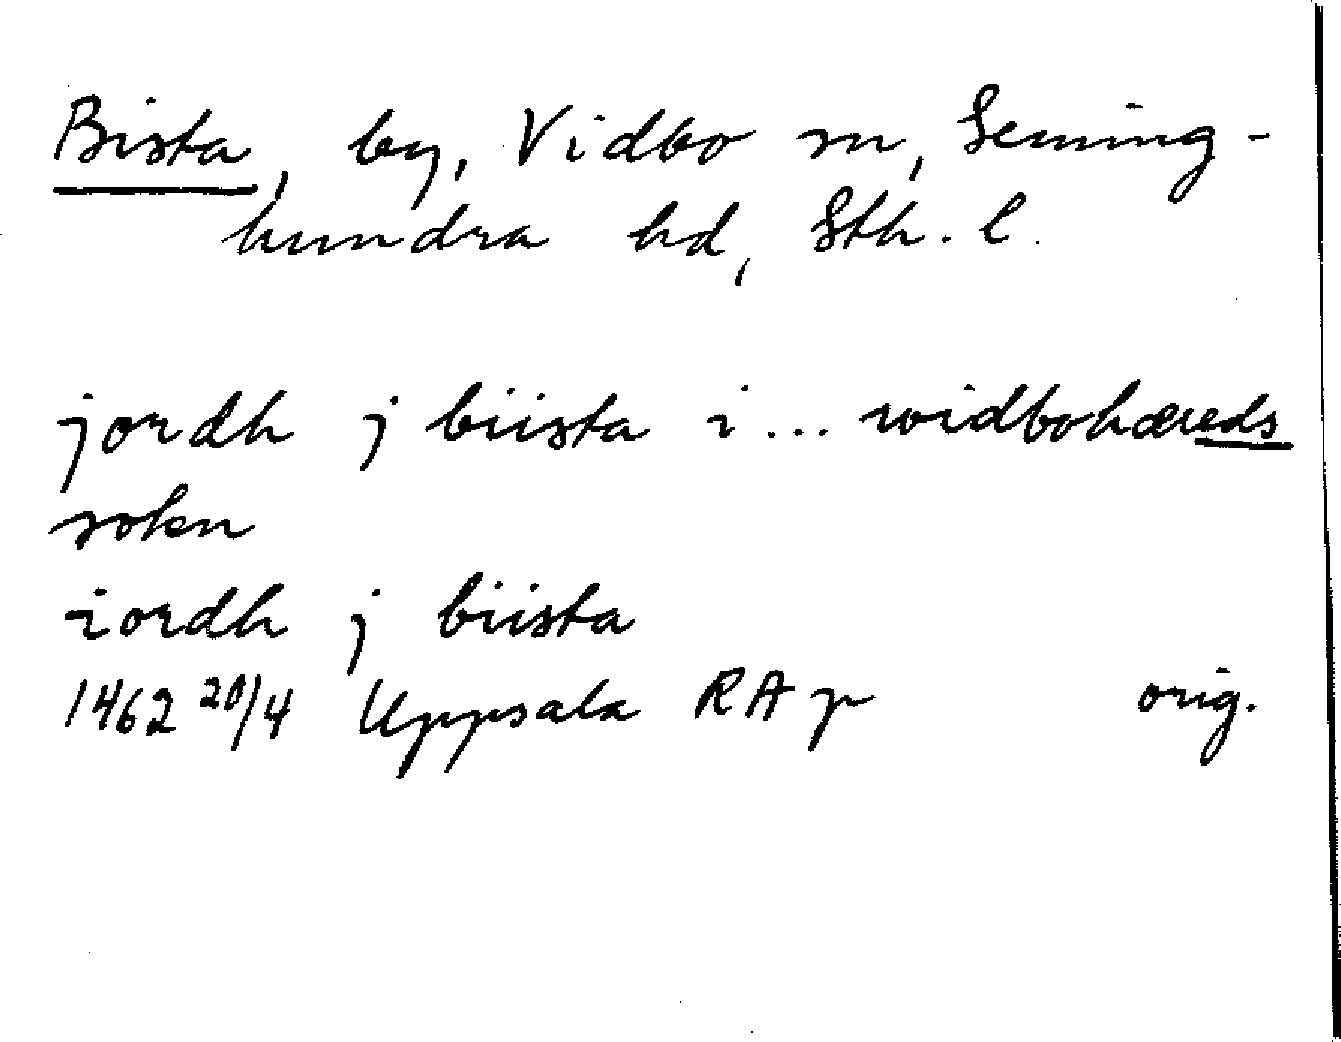 Bista, by, Vidbo sn, Seming-
hundra hd, Sth. l.
jordh j biista i... widbohæreds
sokn
iordh j biista
1462 20/4 Uppsala RAp orig.